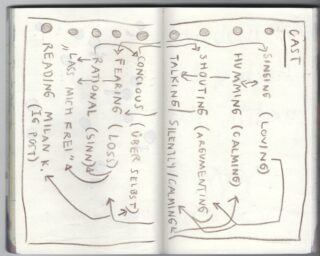 CAST
SINGING (LOVING)
HUMMING (CALMING)
SHOUTING (ARGUMENTING)
TALKING SILENTLY/CALMING
CONCIOUS (ÜBER SELBST)
FEARING (LOSS)
RATIONAL (SINN)
"LASS MICH FREI"
READING MILAN K.
(IG POST)